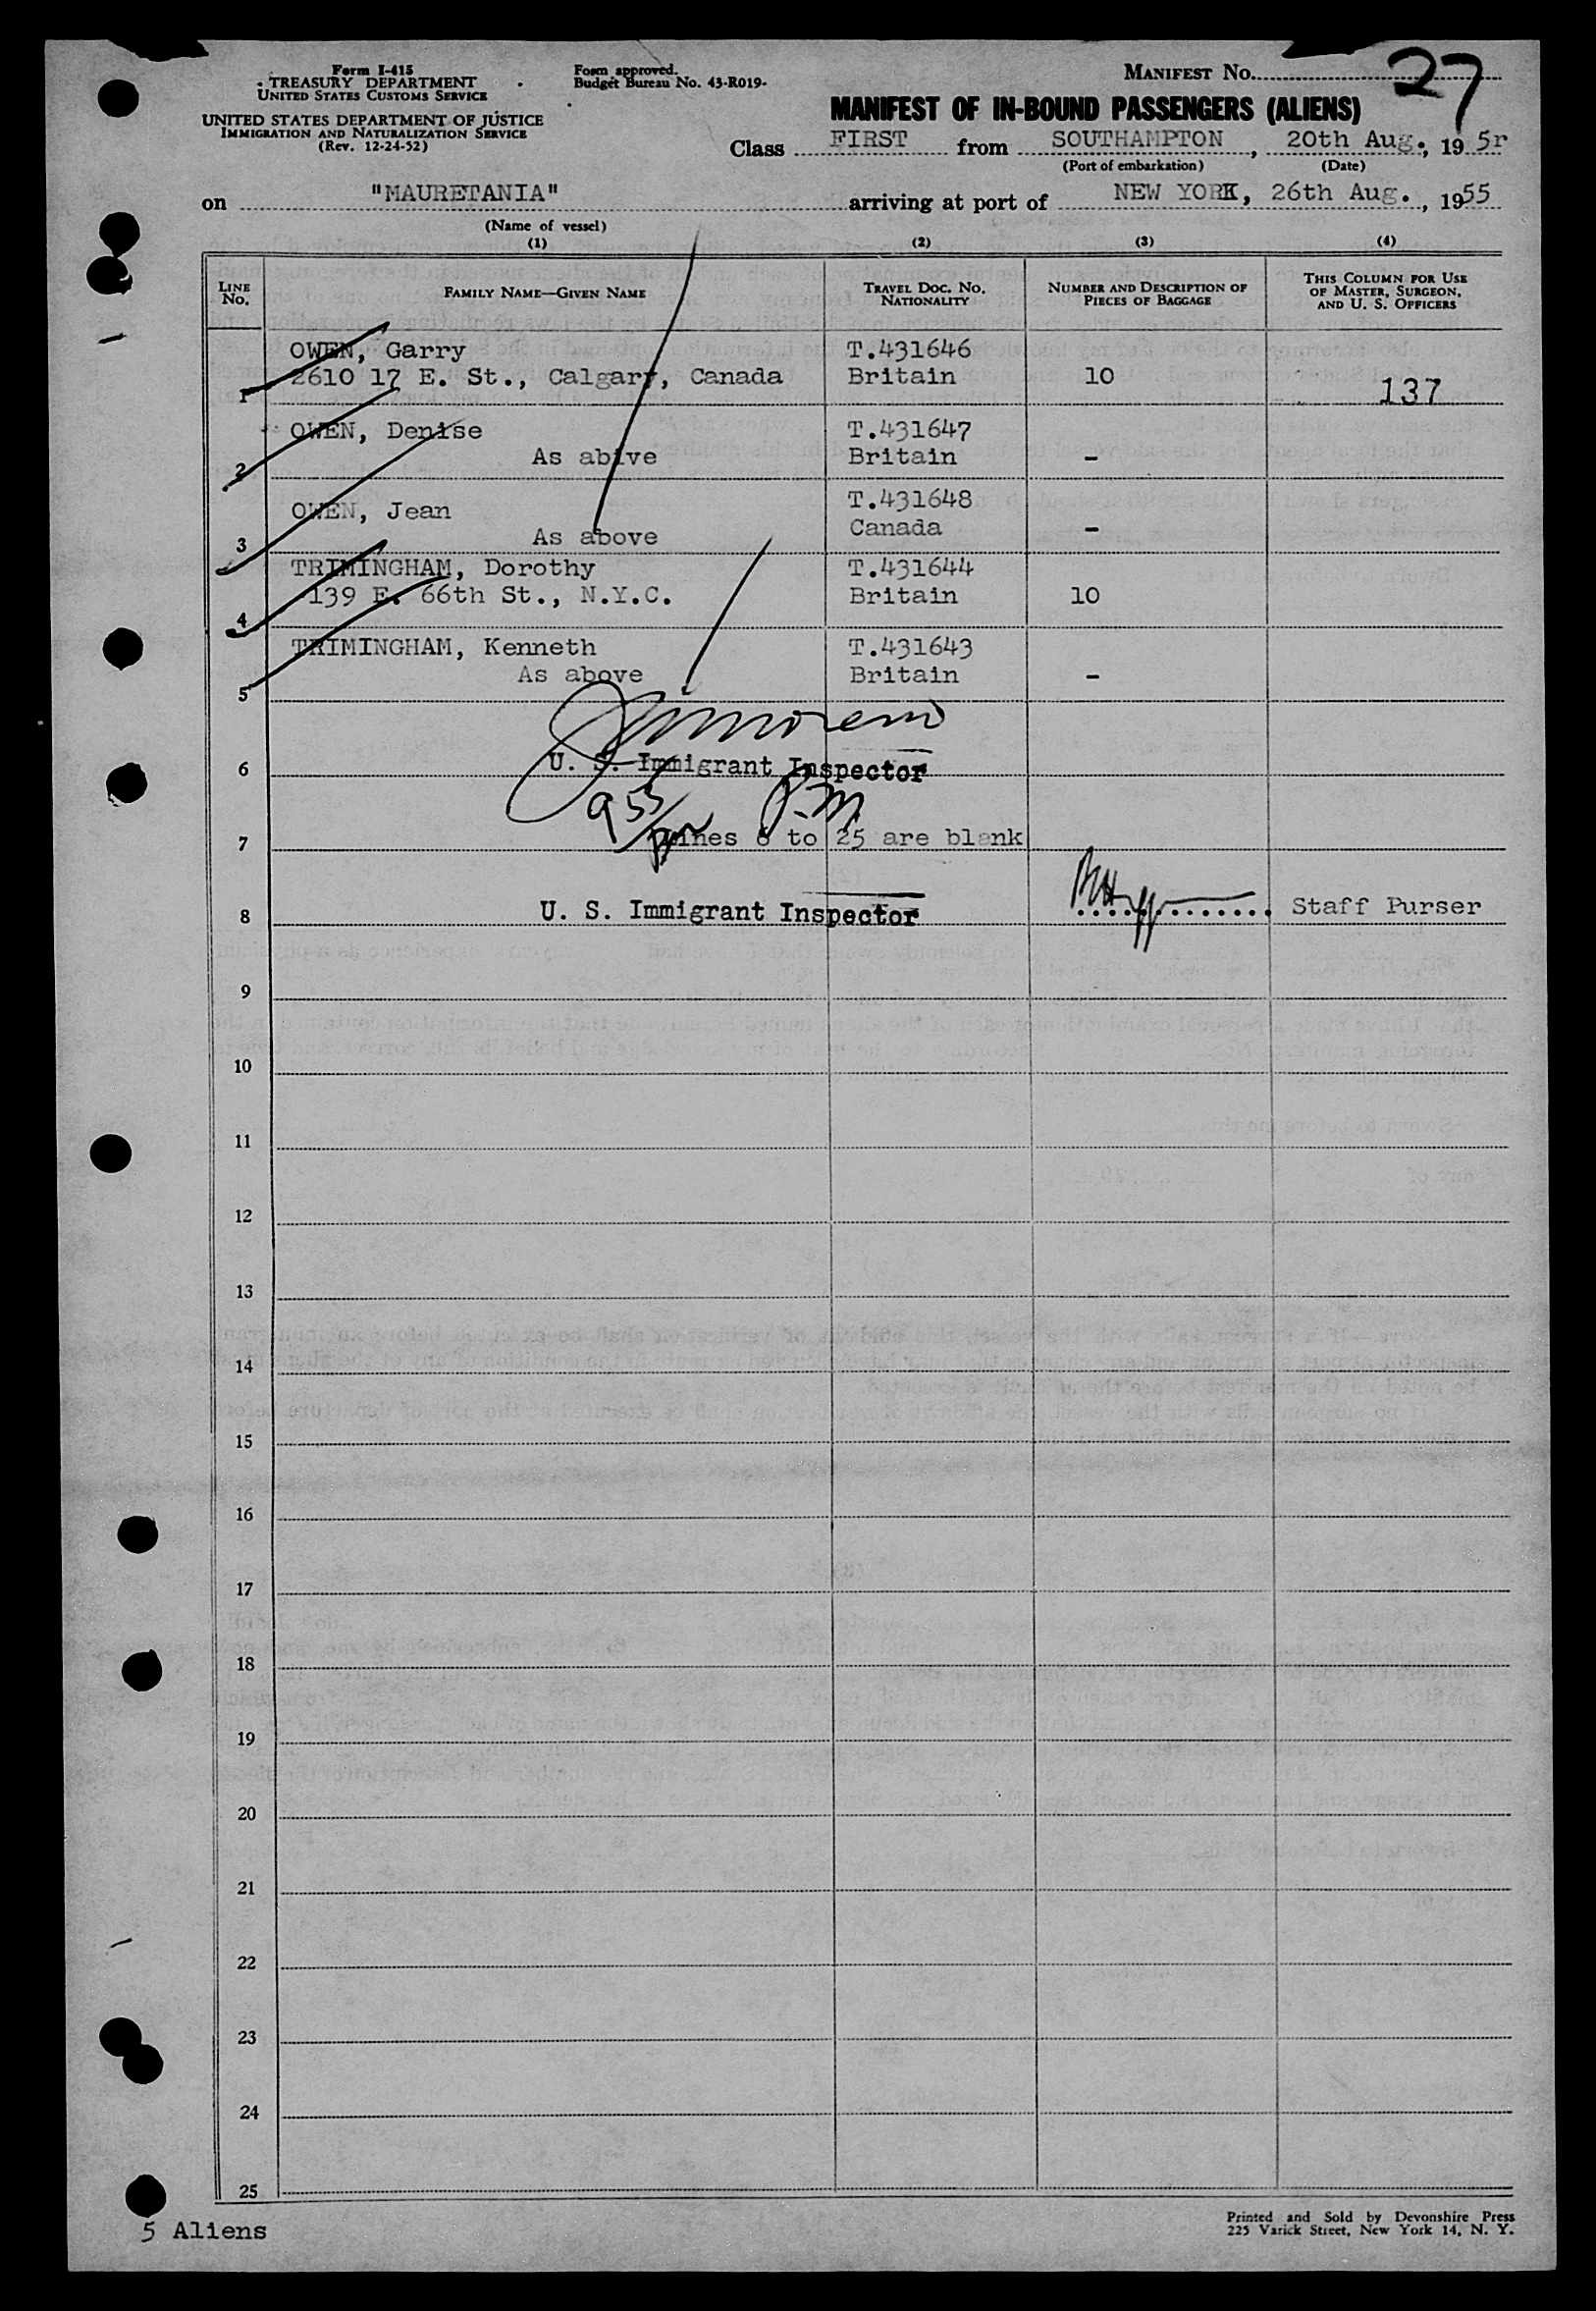 Form I-415
TREASURY DEPARTMENT
UNITED STATES CUSTOMS SERVICE
UNITED STATES DEPARTMENT OF JUSTICE
IMMIGRATION AND NATURALIZATION SERVICE
(Rev. 12-24-52)
Form approved.
Budget Bureau No. 43-R019-
MANIFEST NO. 27
MANIFEST OF IN-BOUND PASSENGERS (ALIENS)
Class FIRST from SOUTHAMPTON, 20th Aug., 19 5r
(Port of embarkation) (Date)
on "MAURETANIA" arriving at port of NEW YORK, 26th Aug., 1955
(Name of vessel)
(1) (2) (3) (4)
LINE NO. FAMILY NAME—GIVEN NAME TRAVEL DOC. NO. NATIONALITY NUMBER AND DESCRIPTION OF PIECES OF BAGGAGE THIS COLUMN FOR USE OF MASTER, SURGEON, AND U. S. OFFICERS
OWEN, Garry T.431646
1 2610 17 E. St., Calgary, Canada Britain 10 137
OWEN, Denise T.431647
2 As abive Britain -
OWEN, Jean T.431648
3 As above Canada -
TRIMINGHAM, Dorothy T.431644
4 139 E. 66th St., N.Y.C. Britain 10
TRIMINGHAM, Kenneth T.431643
5 As above Britain -
6 U. S. Immigrant Inspector
955 P.M.
7 Lines 6 to 25 are blank
8 U. S. Immigrant Inspector Staff Purser
9
10
11
12
13
14
15
16
17
18
19
20
21
22
23
24
25
5 Aliens
Printed and Sold by Devonshire Press
225 Varick Street, New York 14, N. Y.